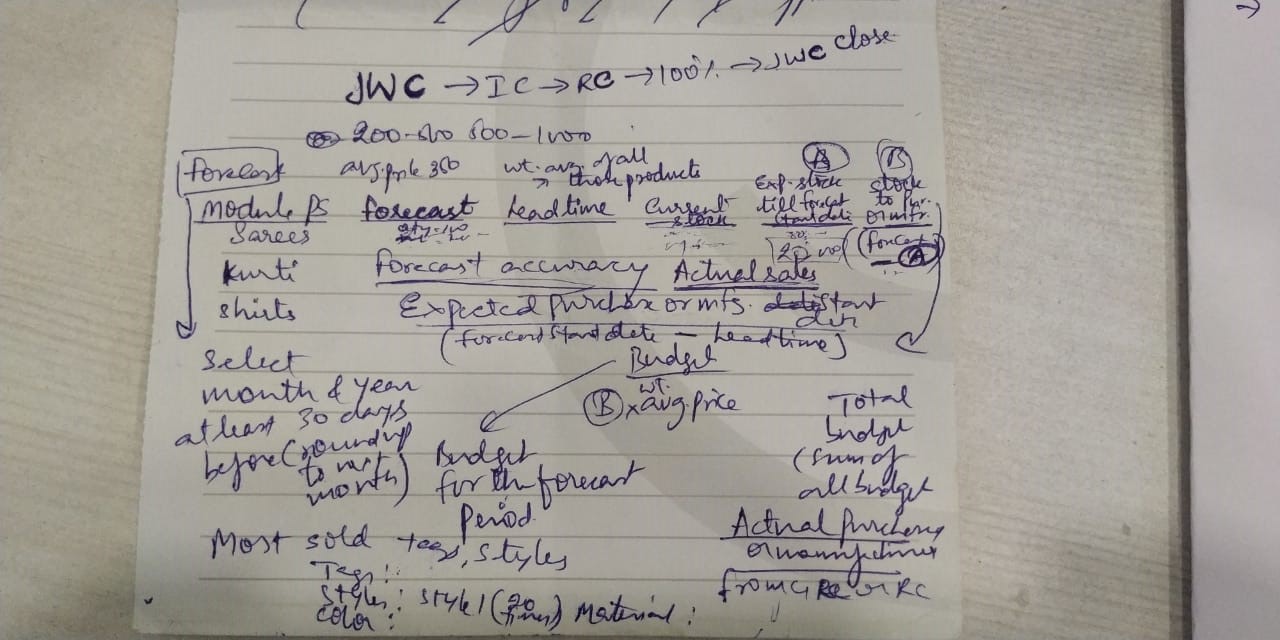 JWC → IC → RC → 100% → JWC close
200-500 500-1000
Forecast avg. 350 wt. avg. of all
→ those products
A B
Exp. stock stock
Module PS forecast Lead time Current stock till forecast start date to pur. or mfr.
Sarees
20 (forecast - A)
Kurti Forecast accuracy Actual sales
Shirts Expected purchase or mfg. start
(forecast start date — Lead time)
Select Budget
month & year B x wt. avg. price Total
at least 30 days budget
before (roundup to next month) Budget (sum of
for the forecast all budget
Period
Most sold tags, styles Actual Purchase
Tags: or manufacture
Styles: Style 1 (20 times) Material: from GRC or RC
Color: